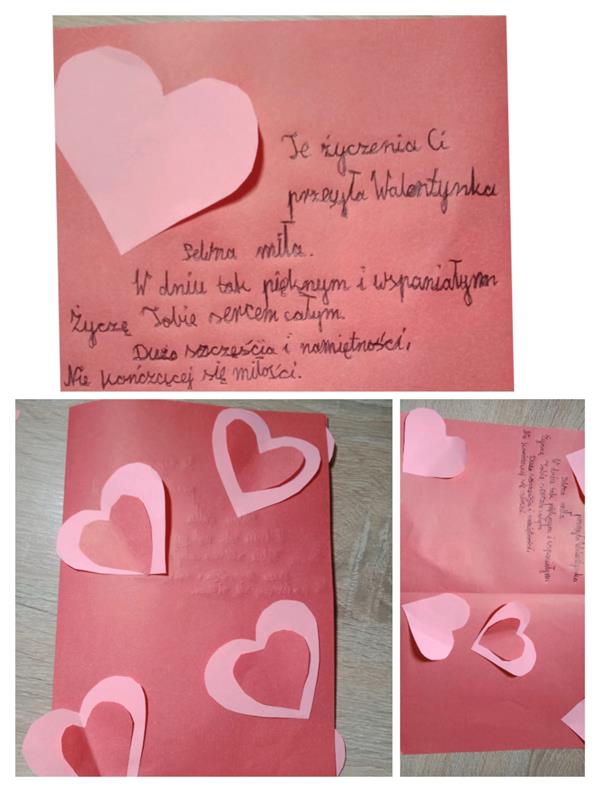 Te życzenia Ci
przesyła Walentynka
pełna miła.
W dniu tak pięknym i wspaniałym
Życzę Tobie sercem całym.
Dużo szczęścia i namiętności,
Nie kończącej się miłości.